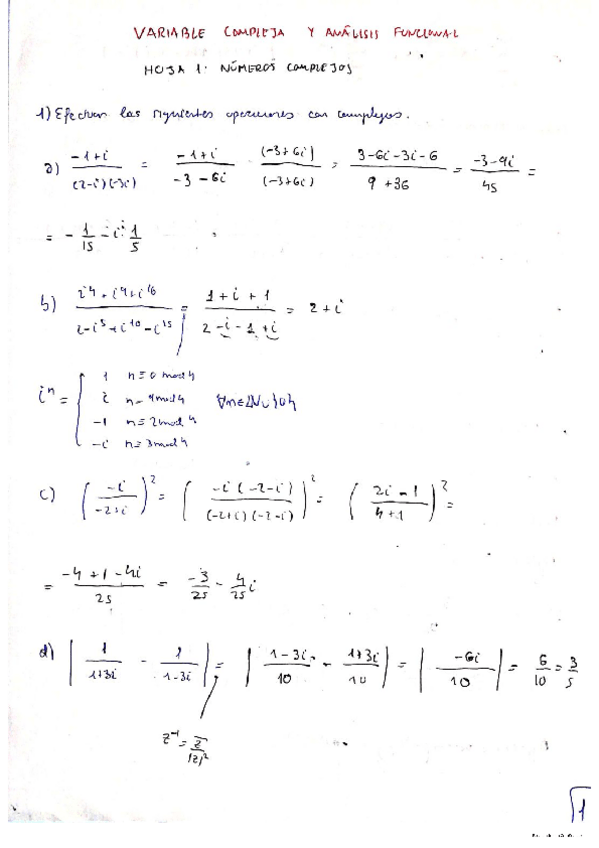 VARIABLE COMPLEJA Y ANÁLISIS FUNCIONAL
HOJA 1: NÚMEROS COMPLEJOS
1) Efectuar las siguientes operaciones con complejos.
a) (-1+i)/((2-i)(-3i)) = (-1+i)/(-3-6i) · (-3+6i)/(-3+6i) = (3-6i-3i-6)/(9+36) = (-3-9i)/45 =
= -1/15 - i 1/5
b) (i⁴+i⁹+i¹⁶)/(2-i⁵+i¹⁰-i¹⁵) = (1+i+1)/(2-i-1+i) = 2+i
iⁿ = { 1 n≡0 mod 4
i n=1 mod 4 ∀n∈ℕ∪{0}
-1 n≡2 mod 4
-i n≡3 mod 4
c) (-i/(-2+i))² = (-i(-2-i)/((-2+i)(-2-i)))² = ((2i-1)/(4+1))² =
= (-4+1-4i)/25 = -3/25 - 4/25 i
d) |1/(1+3i) - 1/(1-3i)| = |(1-3i)/10 - (1+3i)/10| = |-6i/10| = 6/10 = 3/5
z⁻¹ = z̅/|z|²
1